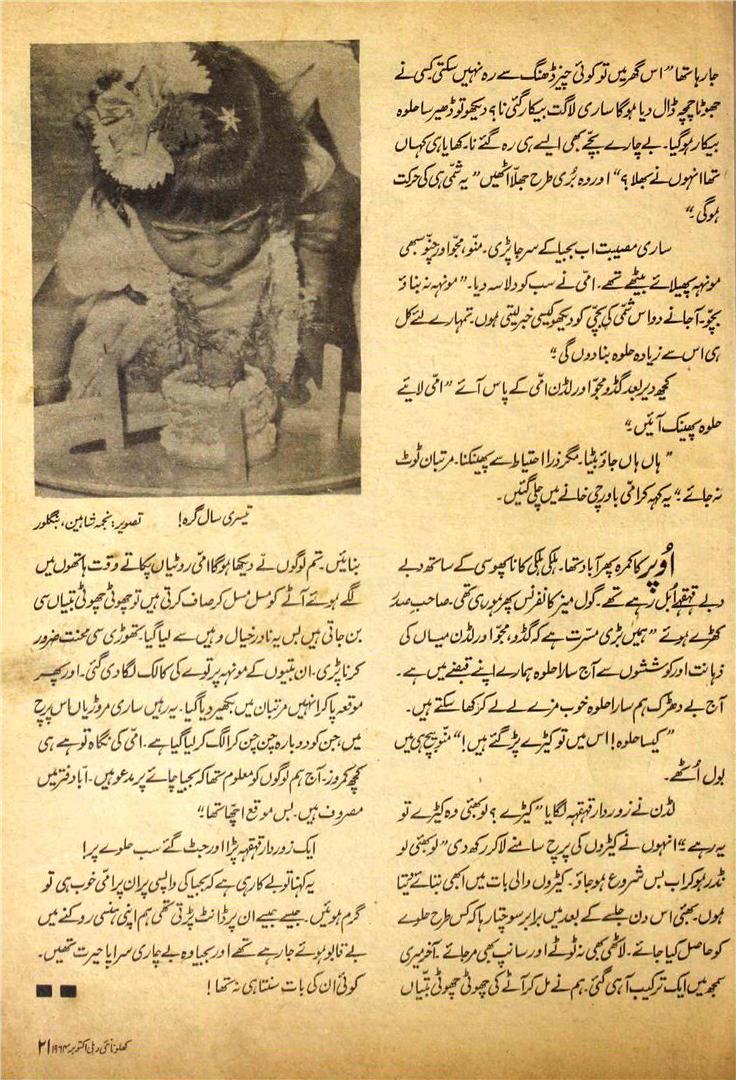 جارہا تھا ”اس گھر میں تو کوئی چیز ڈھنگ سے رہ نہیں سکتی کسی نے
جھوٹا چمچہ ڈال دیا ہوگا ساری لاگت بیکار گئی نا؟ دیکھو تو ڈھیر سا حلوہ
بیکار ہوگیا۔ بے چارے بچّے بھی ایسے ہی رہ گئے نا۔ کھایا ہی کہاں
تھا انہوں نے بھلا؟“ اور وہ بُری طرح جھلّا اٹھیں ”یہ شمّی ہی کی حرکت
ہوگی۔“
ساری مصیبت اب بجیا کے سر جا پڑی۔ منّو، مجّو اور چنّو سبھی
مونہہ پھیلائے بیٹھے تھے۔ امّی نے سب کو دلاسہ دیا۔ ”مونہہ نہ بناؤ
بچّو۔ آجانے دو اس شمّی کی بچّی کو دیکھو کیسی خبر لیتی ہوں۔ تمہارے لئے کل
ہی اس سے زیادہ حلوہ بنا دوں گی۔“
کچھ دیر بعد گڈو مجّو اور لڈن امّی کے پاس آئے ”امّی لایئے
حلوہ پھینک آئیں۔“
”ہاں ہاں جاؤ بیٹا۔ مگر ذرا احتیاط سے پھینکنا۔ مرتبان ٹوٹ
نہ جائے۔“ یہ کہہ کر امّی باورچی خانے میں چلی گئیں۔
اُوپر کا کمرہ پھر آباد تھا۔ ہلکی ہلکی کانا پھوسی کے ساتھ دبے
دبے قہقہے اُبل رہے تھے۔ گول میز کانفرنس پھر ہو رہی تھی۔ صاحب صدر
کھڑے ہوئے ”ہمیں بڑی مسرّت ہے کہ گڈو، مجّو اور لڈن میاں کی
ذہانت اور کوششوں سے آج سارا حلوہ ہمارے اپنے قبضے میں ہے۔
آج بے دھڑک ہم سارا حلوہ خوب مزے لے لے کر کھا سکتے ہیں۔
”کیسا حلوہ! اس میں تو کیڑے پڑ گئے ہیں!“ منّو بیچ ہی میں
بول اُٹھے۔
لڈن نے زور دار قہقہہ لگایا ”کیڑے؟ لو بھئی وہ کیڑے تو
یہ رہے۔“ انہوں نے کیڑوں کی پرچ سامنے لاکر رکھ دی ”لو بھئی لو
نڈر ہو کر اب بس شروع ہوجاؤ۔ کیڑوں والی بات میں ابھی بتائے دیتا
ہوں۔ بھئی اس دن جلسے کے بعد میں برابر سوچتا رہا کہ کس طرح حلوے
کو حاصل کیا جائے۔ لاٹھی بھی نہ ٹوٹے اور سانپ بھی مرجائے۔ آخر میری
سمجھ میں ایک ترکیب آہی گئی۔ ہم نے مل کر آٹے کی چھوٹی چھوٹی بتّیاں
تیسری سال گرہ! تصویر: نجمہ شاہین، بنگلور
بنائیں۔ تم لوگوں نے دیکھا ہوگا امّی روٹیاں پکاتے وقت ہاتھوں میں
لگے ہوئے آٹے کو مسل مسل کر صاف کرتی ہیں تو چھوٹی چھوٹی بتیاں سی
بن جاتی ہیں بس یہ نادر خیال وہیں سے لیا گیا۔ تھوڑی سی محنت ضرور
کرنا پڑی۔ ان بتیوں کے مونہہ پر توے کی کالک لگا دی گئی۔ اور پھر
موقعہ پاکر انہیں مرتبان میں بکھیر دیا گیا۔ یہ رہیں ساری مروڑیاں اس پرچ
میں، جن کو دوبارہ چن چن کر الگ کر لیا گیا ہے۔ امّی کی نگاہ تو ہے ہی
کچھ کمزور۔ آج ہم لوگوں کو معلوم تھا کہ بجیا چائے پر مدعو ہیں۔ ابّا دفتر میں
مصروف ہیں۔ بس موقع اچّھا تھا۔“
ایک زور دار قہقہہ پڑا اور جٹ گئے سب حلوے پر!
یہ کہنا تو بے کار ہی ہے کہ بجیا کی واپسی پر ان پر امّی خوب ہی تو
گرم ہوئیں۔ جیسے جیسے ان پر ڈانٹ پڑتی تھی ہم اپنی ہنسی روکنے میں
بے قابو ہوئے جارہے تھے اور بجیا وہ بے چاری سراپا حیرت تھیں۔
کوئی ان کی بات سنتا ہی نہ تھا!
کھلونا نئی دہلی اکتوبر ۱۹۶۴ ۲۱